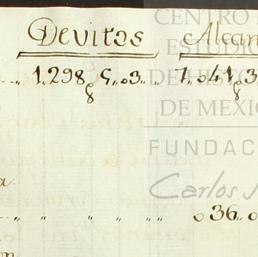 Devitos Alcan
1.298,,5,,03,, 1,,041,,3
8 8
a
,, ,, ,, ,, ,, 036,,0
CENTRO
ESTUDIO
DE HISTOR
DE MEXIC
FUNDAC
Carlos